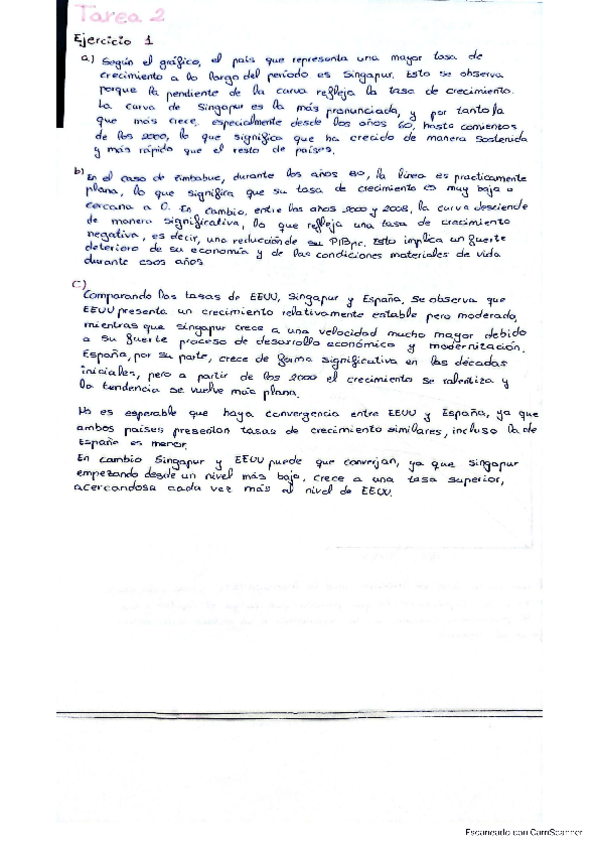 Tarea 2
Ejercicio 1
a) Según el gráfico, el país que representa una mayor tasa de
crecimiento a lo largo del período es Singapur. Esto se observa
porque la pendiente de la curva refleja la tasa de crecimiento.
La curva de Singapur es la más pronunciada, y por tanto la
que más crece, especialmente desde los años 60, hasta comienzos
de los 2000, lo que significa que ha crecido de manera sostenida
y más rápido que el resto de países.
b) En el caso de Zimbabue, durante los años 80, la línea es practicamente
plana, lo que significa que su tasa de crecimiento es muy baja o
cercana a 0. En cambio, entre los años 2000 y 2008, la curva desciende
de manera significativa, lo que refleja una tasa de crecimiento
negativa, es decir, una reducción de su PIBpc. Esto implica un fuerte
deterioro de su economía y de las condiciones materiales de vida
durante esos años.
C)
Comparando las tasas de EEUU, Singapur y España, se observa que
EEUU presenta un crecimiento relativamente estable pero moderado,
mientras que Singapur crece a una velocidad mucho mayor debido
a su fuerte proceso de desarrollo económico y modernización.
España, por su parte, crece de forma significativa en las décadas
iniciales, pero a partir de los 2000 el crecimiento se ralentiza y
la tendencia se vuelve más plana.
No es esperable que haya convergencia entre EEUU y España, ya que
ambos países presentan tasas de crecimiento similares, incluso la de
España es menor.
En cambio Singapur y EEUU puede que converjan, ya que Singapur
empezando desde un nivel más bajo, crece a una tasa superior,
acercandose cada vez más al nivel de EEUU.
Escaneado con CamScanner